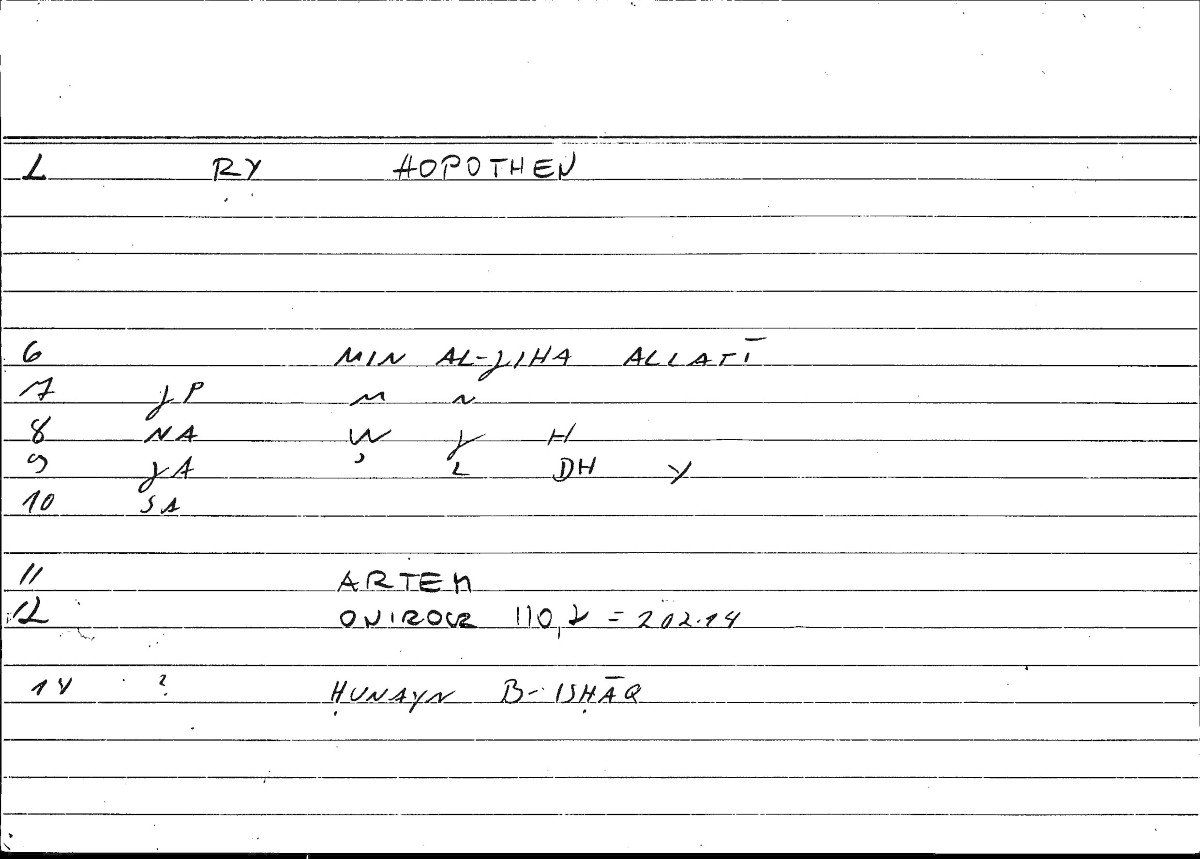 1 RY HOPOTHEN
6 MIN AL-JIHA ALLATĪ
7 JP M N
8 NA W J H
9 JA ʾ L DH Y
10 SA
11 ARTEM
12 ONIROCR 110, = 202.14
14 ? ḤUNAYN B- ISḤĀQ